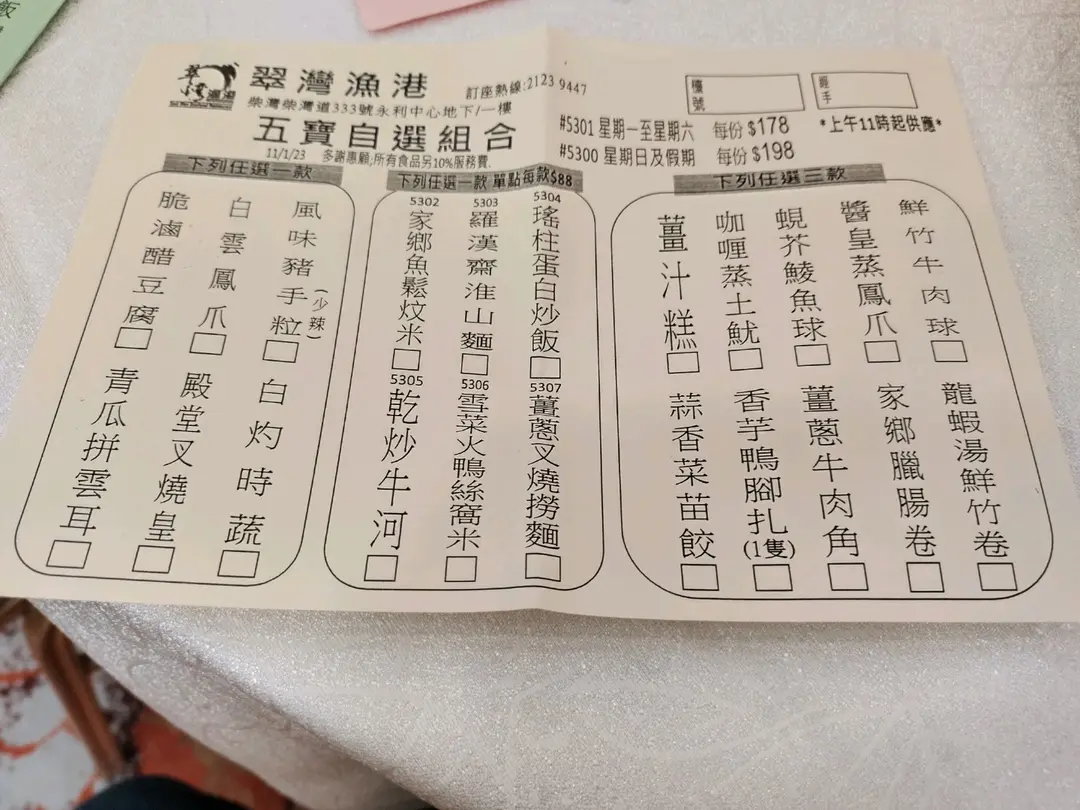 飯
翠灣漁港
翠灣漁港
訂座熱線:2123 9447
柴灣柴灣道333號永利中心地下/一樓
五寶自選組合
11/1/23 多謝惠顧,所有食品另10%服務費.
#5301 星期一至星期六 每份 $178 *上午11時起供應*
#5300 星期日及假期 每份 $198
檯號
經手
下列任選一款
風味豬手粒(少辣)
白雲鳳爪
脆滷醋豆腐
白灼時蔬
殿堂叉燒皇
青瓜拼雲耳
下列任選一款 單點每款$88
5304
瑤柱蛋白炒飯
5303
羅漢齋淮山麵
5302
家鄉魚鬆炆米
5307
薑蔥叉燒撈麵
5306
雪菜火鴨絲窩米
5305
乾炒牛河
下列任選三款
鮮竹牛肉球
醬皇蒸鳳爪
蜆芥鯪魚球
咖喱蒸土魷
薑汁糕
龍蝦湯鮮竹卷
家鄉臘腸卷
薑蔥牛肉角
香芋鴨腳扎(1隻)
蒜香菜苗餃